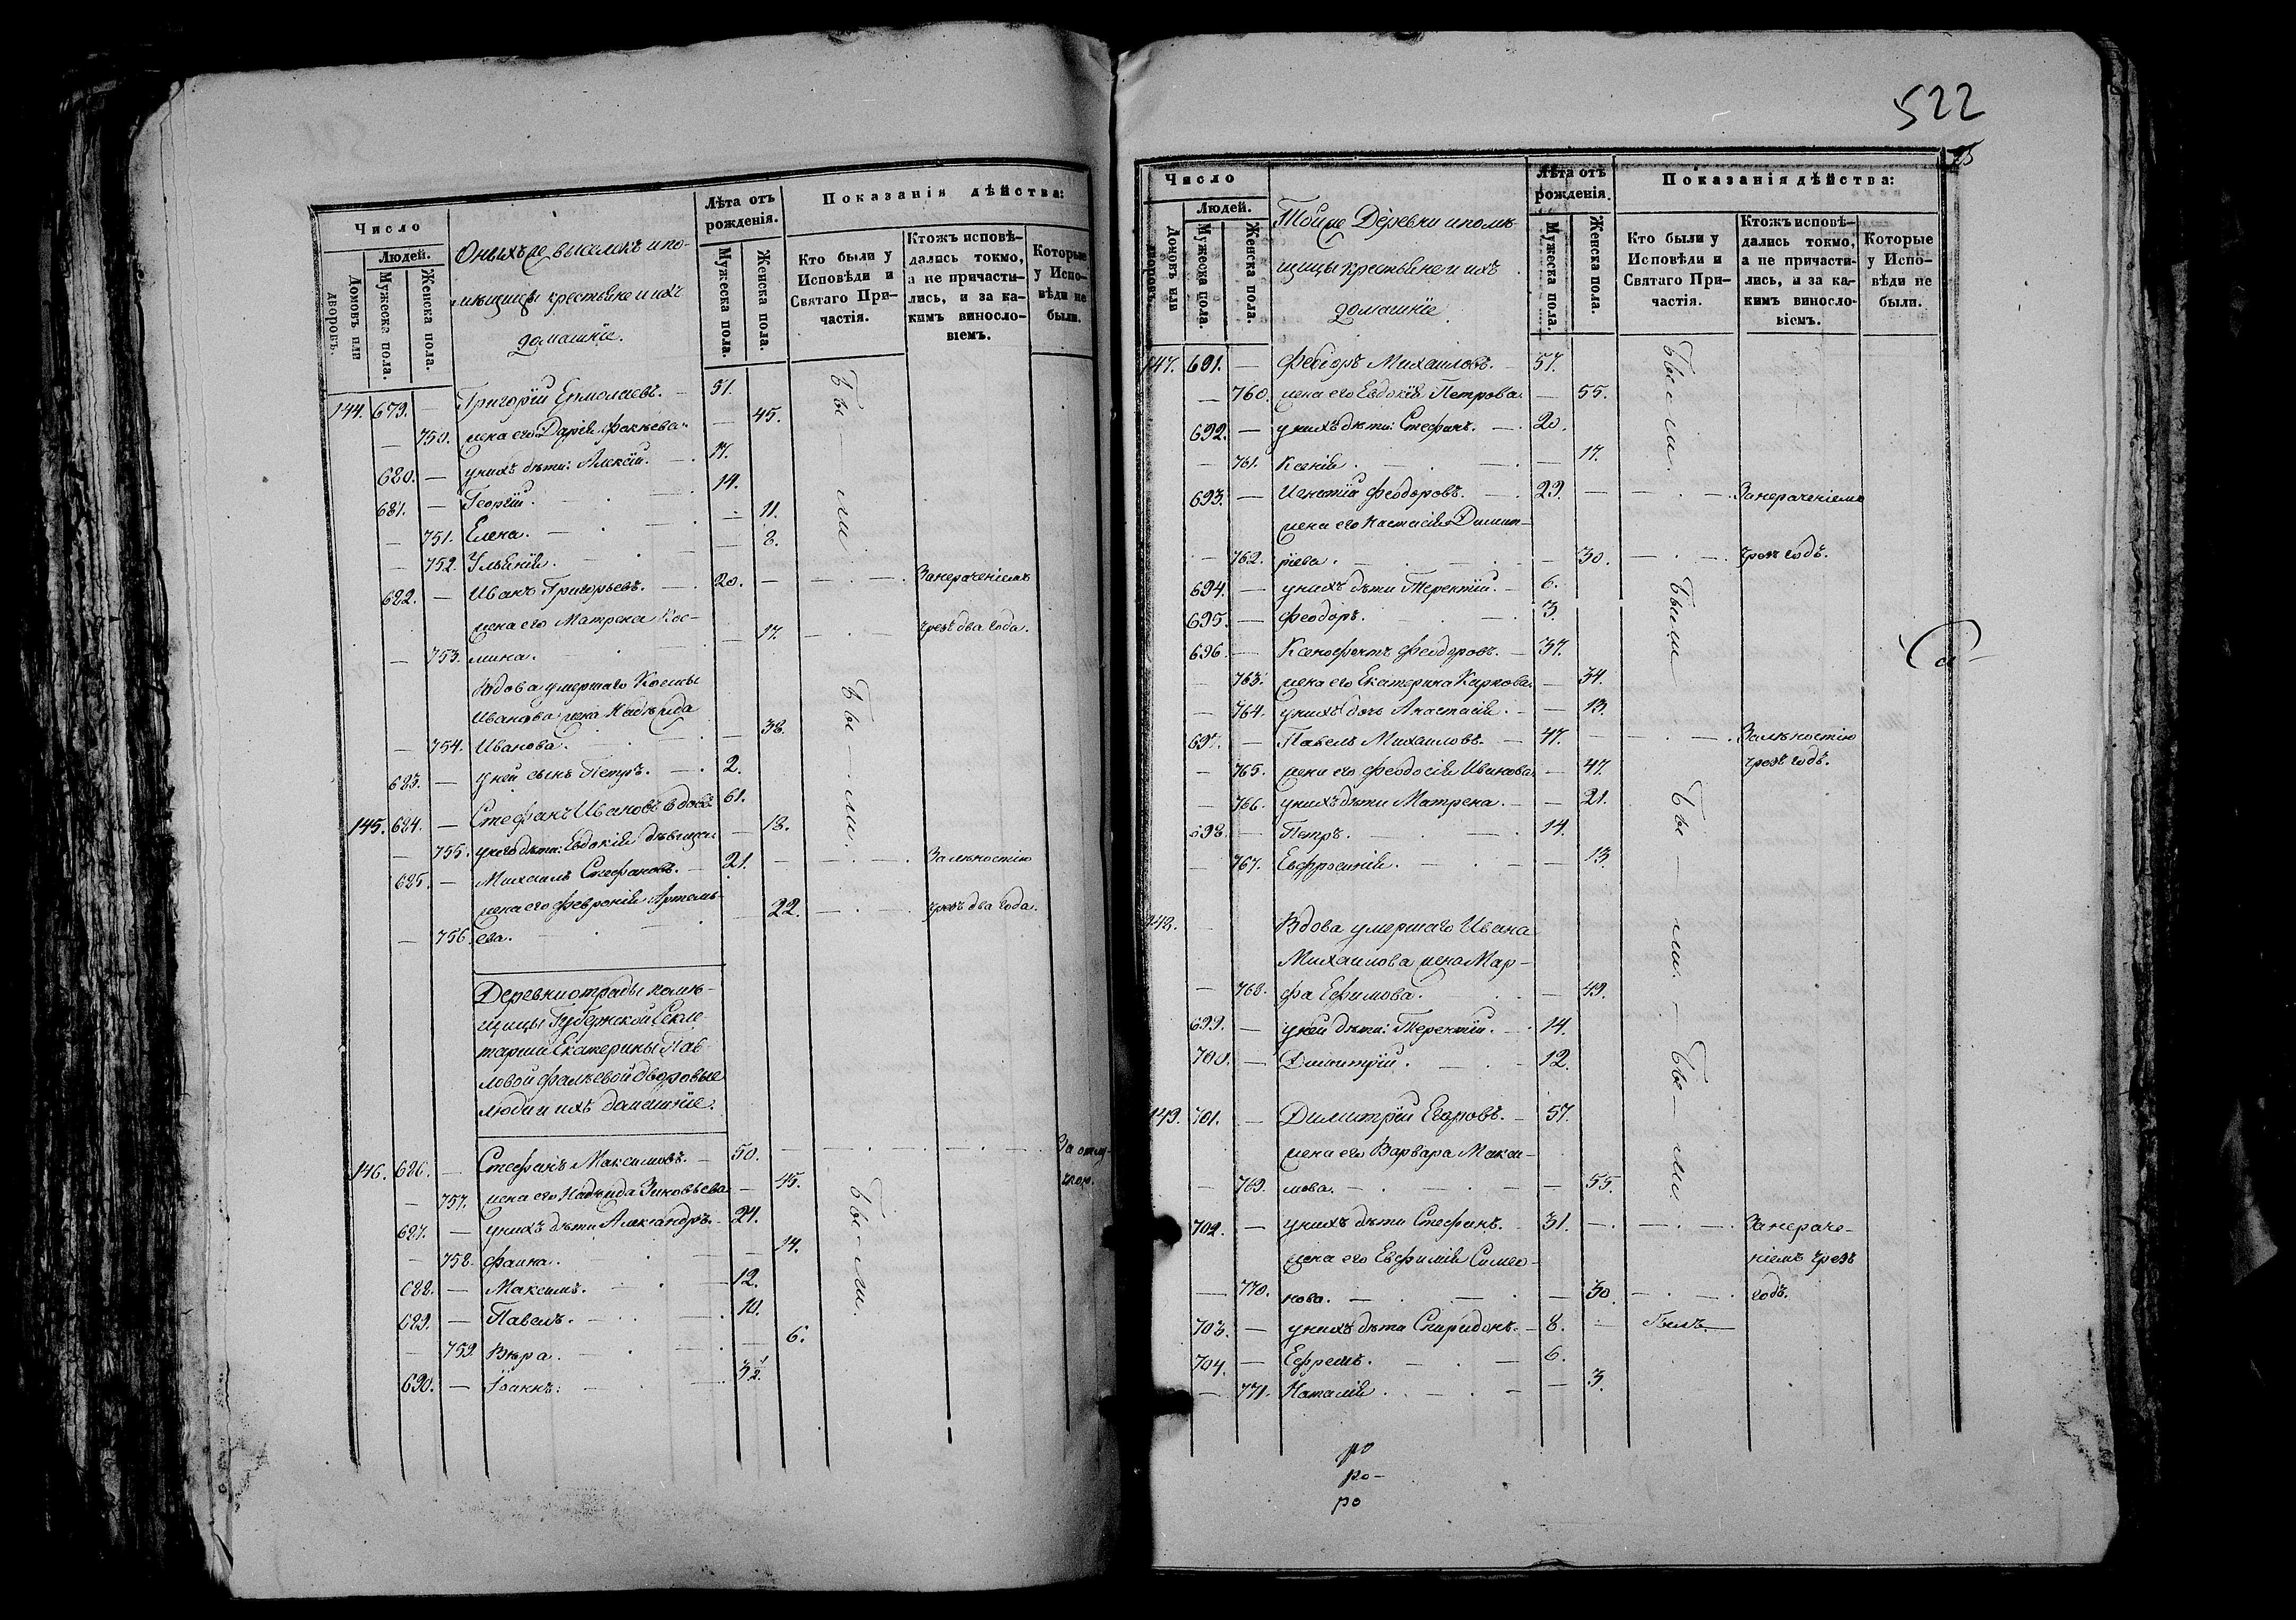 Число
Людей.
Домовъ или дворовъ.
Мужеска пола.
Женска пола.
Оныхъ же выселокъ и по-
мѣщицы крестьяне и ихъ
домашніе.
Лѣта отъ рожденія.
Мужеска пола.
Женска пола.
Показанія дѣйства:
Кто были у Исповѣди и Святаго При-частія.
Ктожъ исповѣ-дались токмо, а не причасти-лись, и за ка-кимъ винословіемъ.
Которые у Испо-вѣди не были.
144. 679. — Григорій Ермолаевъ. — 51.
— 750. жена его Дарія Фокѣева. — 45.
680. — у нихъ дѣти: Алексій. — 17.
681. — Георгій. — 14.
— 751. Елена. — 11.
— 752. Ульянія. — 8.
Бы — ли.
682. — Иванъ Григорьевъ. — 20. — — Занераченіемъ
жена его Матрена Кос-
— 753. мина. — 17. — чрезъ два года.
Вдова умершаго Космы
Иванова жена Надежда
— 754. Иванова. — 38.
683. — у ней сынъ Петръ. — 2.
145. 684. — Стефанъ Ивановъ вдовъ 61.
— 755. у него дѣти: Евдокія дѣвица — 18.
Бы — ли.
685. — Михаилъ Стефановъ. — 21. — — Залѣностію
жена его Февронія Артемь-
— 756. ева. — 22. — чрезъ два года.
Деревни отрады помѣ-
щицы Губернской Секре
тарши Екатерины Пав
ловой Фалѣевой дворовые
люди и ихъ домашніе.
146. 686. — Стефанъ Максимовъ. — 50. — — За отлу-
— 757. жена его Надежда Зиновьева — 45. чкою.
687. — у нихъ дѣти Александръ. — 24.
— 758. Фаина. — 14.
688. — Максимъ. — 12.
689. — Павелъ. — 10.
— 759. Вѣра. — 6.
690. — Іоаннъ. — 3 1/2.
Бы — ли.
522
Число
Людей.
Домовъ или дворовъ.
Мужеска пола.
Женска пола.
Той же Деревни и помѣ-
щицы крестьяне и ихъ
домашніе.
Лѣта отъ рожденія.
Мужеска пола.
Женска пола.
Показанія дѣйства:
Кто были у Исповѣди и Святаго При-частія.
Ктожъ исповѣ-дались токмо, а не причасти-лись, и за ка-кимъ винословіемъ.
Которые у Испо-вѣди не были.
147. 691. — Феодоръ Михаиловъ. — 57.
— 760. жена его Евдокія Петрова. — 55.
692. — у нихъ дѣти: Стефанъ. — 20.
— 761. Ксенія. — 17.
Были.
693. — Игнатій Феодоровъ. — 29. — — Занераченіемъ
жена его Настасія Димит-
— 762. ріева. — 30. — чрезъ годъ.
694. — у нихъ дѣти Терентій. — 6.
695. — Феодоръ. — 3.
696. — Ксенофонтъ Феодоровъ. — 37.
— 763. жена его Екатерина Карпова. — 34.
— 764. у нихъ дочь Анастасія. — 13.
Были
697. — Павелъ Михаиловъ. — 47. — — Залѣностію
— 765. жена его Феодосія Иванова. — 47. чрезъ годъ.
— 766. у нихъ дѣти Матрена. — 21.
698. — Петръ. — 14.
— 767. Евфросинія. — 13.
148. — Вдова умершаго Ивана
Михаилова жена Мар-
— 768. фа Ефимова. — 49.
699. — у ней дѣти: Терентій. — 14.
700. — Димитрій. — 12.
Бы — ли.
149. 701. — Димитрій Егоровъ. — 57.
жена его Варвара Макси-
— 769. мова. — 55.
Бы — ли.
702. — у нихъ дѣти Стефанъ. — 31. — — Занераче-
жена его Евфимія Симео- ніемъ чрезъ
— 770. нова. — 30. — годъ.
703. — у нихъ дѣти Спиридонъ. — 8. — Былъ.
704. — Ефремъ. — 6.
— 771. Наталія. — 3.
ро
ро-
ро